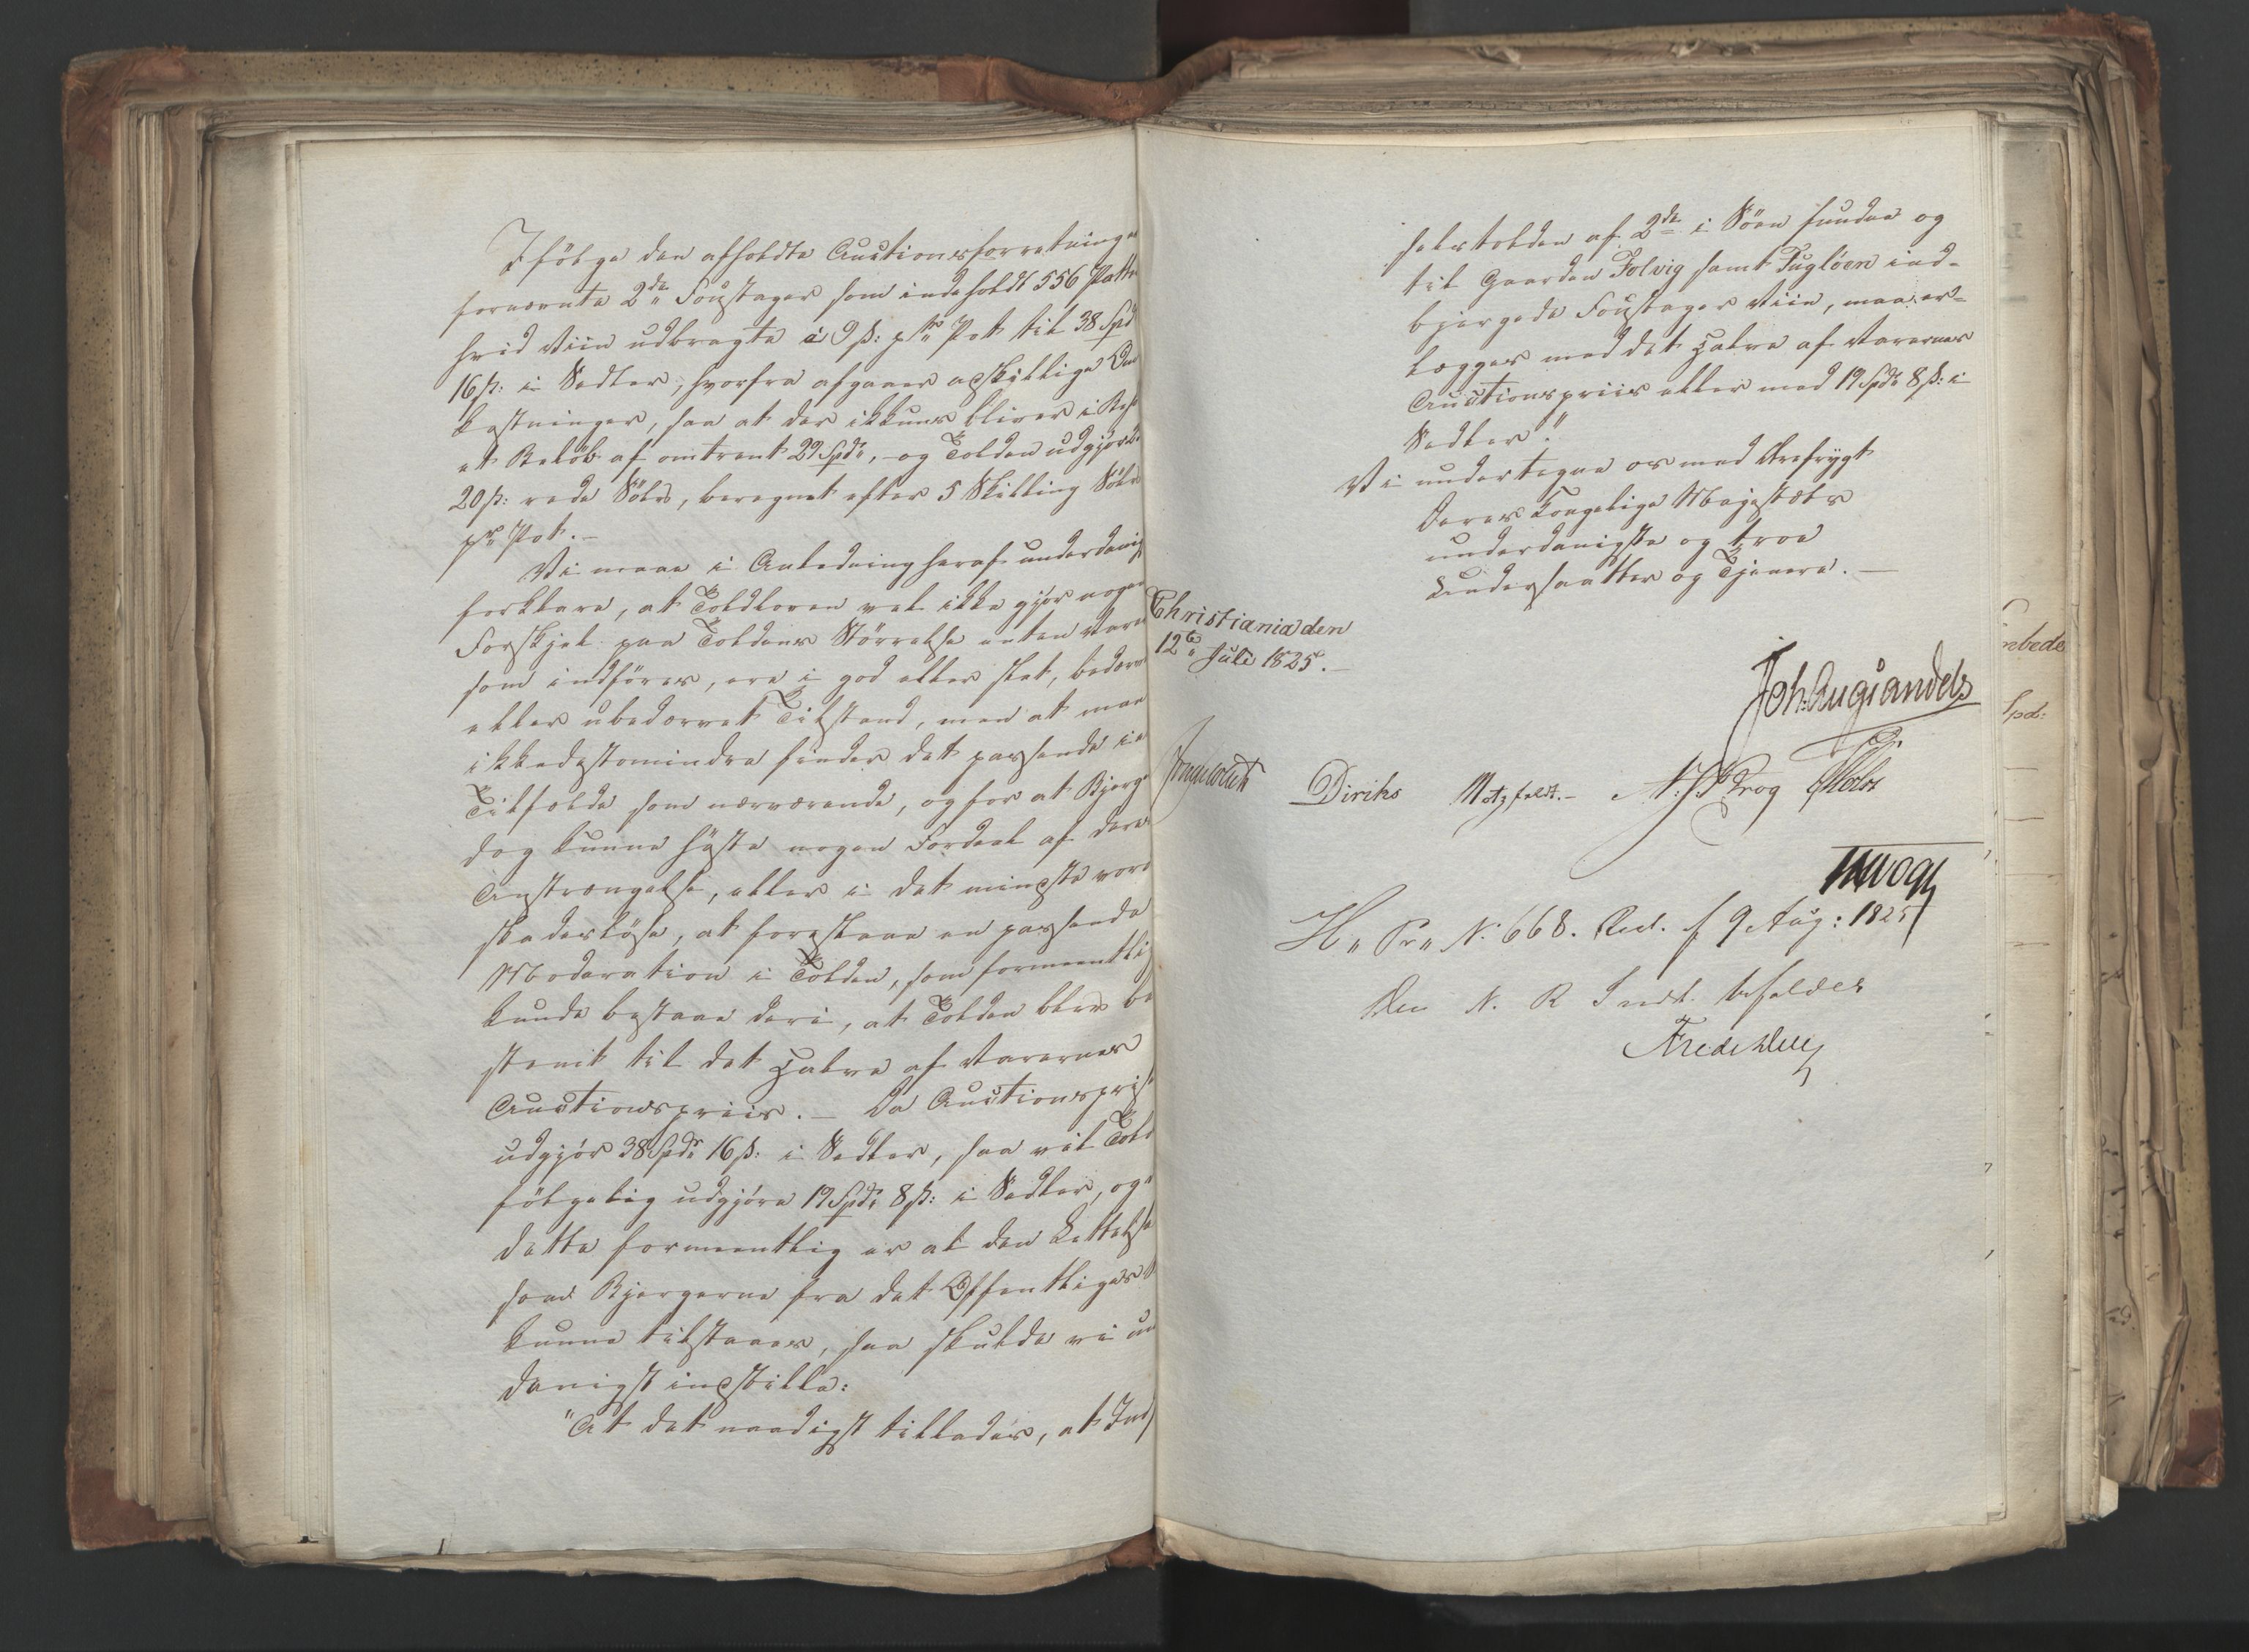 Ifölge den afholdte Auctionsforretning
fornævnte 2de Foustager som indeholdt 556 Potter
hvid Viin udbragte à 9 ß: pr Pot til 38 Spd
16 ß: i Sedler, hvorfra afgaaer adskillige Om
kostninger, saa at der ikkuns bliver i Rest
et Beløb af omtrent 29 Spdr, og Tolden udgjør
20 ß: rede Sölv, beregnet efter 5 Skilling Sölv
pr Pot. –
Vi maae i Anledning heraf underdanigst
forklare, at Toldloven vel ikke gjør nogen
Forskjel paa Toldens Störrelse enten Varer
som indföres, ere i god eller slet, bedærvet
eller ubedærvet Tilstand, men at man
ikkedestomindre finder det passende i
Tilfælde som nærværende, og for at Bjerg
dog kunne høste nogen Fordeel af deres
Anstrængelse, eller i det mindste vorde
skadesløse, at foreslaae en passende
Moderation i Tolden, som formeentlig
kunde bestaae deri, at Tolden blev be
stemt til det Halve af Varernes
Auctionspriis. – Da Auctionspris
udgjør 38 Spdr 16 ß: i Sedler, saa vil Told
fölgelig udgjöre 19 Spdr 8 ß: i Sedler, og
dette formeentlig er al den Lettelse
som Bjergerne fra det Offentliges
kunne tilstaaes, saa skulde vi un
danigst indstille:
"At det naadigst tillades, at Ind
førselstolden af 2de i Söen fundne og
til Gaarden Folvig samt Fuglöen ind-
bjergede Foustager Viin, maa er-
lægges med det Halve af Varernes
Auctionspriis eller med 19 Spdr 8 ß: i
Sedler."
Vi undertegne os med Ærefrygt
Deres Kongelige Majestæts
underdanigste og troe
Undersaatter og Tjenere. –
Christiania den
12te Juli 1825. –
Joh: Aug: Sandels
Diriks Motzfeldt. – Krog
Vogt
H„ Pr„ N. 668. Res. f 9 Aug: 1825
Den N. R Indst. bifaldes
Fredr Due
nbede
Spd: